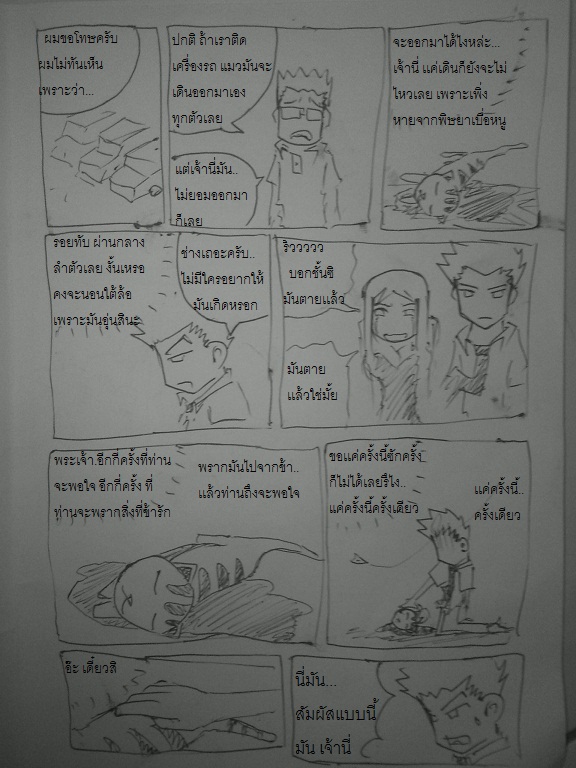 ผมขอโทษครับ
ผมไม่ทันเห็น
เพราะว่า...
ปกติ ถ้าเราติด
เครื่องรถ แมวมันจะ
เดินออกมาเอง
ทุกตัวเลย
แต่เจ้านี่มัน..
ไม่ยอมออกมา
ก็เลย
จะออกมาได้ไงหล่ะ...
เจ้านี่ แค่เดินก็ยังจะไม่
ไหวเลย เพราะเพิ่ง
หายจากพิษยาเบื่อหนู
รอยทับ ผ่านกลาง
ลำตัวเลย งั้นเหรอ
คงจะนอนใต้ล้อ
เพราะมันอุ่นสินะ
ช่างเถอะครับ..
ไม่มีใครอยากให้
มันเกิดหรอก
ริววววว
บอกชั้นซิ
มันตายแล้ว
มันตาย
แล้วใช่มั้ย
พระเจ้า.อีกกี่ครั้งที่ท่าน
จะพอใจ อีกกี่ครั้ง ที่
ท่านจะพรากสิ่งที่ข้ารัก
พรากมันไปจากข้า..
แล้วท่านถึงจะพอใจ
ขอแค่ครั้งนี้ซักครั้ง..
ก็ไม่ได้เลยรึไง..
แค่ครั้งนี้ครั้งเดียว
แค่ครั้งนี้..
ครั้งเดียว
อ๊ะ เดี๋ยวสิ
นี่มัน...
สัมผัสแบบนี้
มัน เจ้านี่